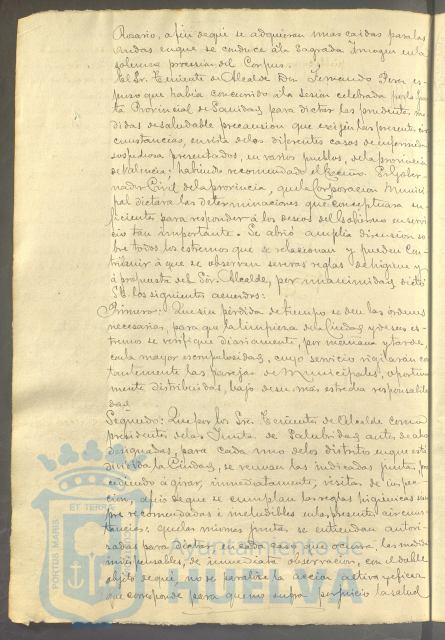 Rosario, a fin de que se adquieran unas caidas para las
andas en que se conduce á la Sagrada Imagen en la
solemne procesion del Corpus.
El Sr. Teniente de Alcalde Don Fernando Perez, es-
puso que habia concurrido á la sesion celebrada por la Jun-
ta Provincial de Sanidad, para dictar las prudentes me-
didas de saludable precaucion que exigen las presentes cir-
cunstancias, en vista de los diferentes casos de enfermedad
sospechosa presentados, en varios pueblos, de la provincia
de Valencia; habiendo recomendado el Excmo. Sr. Gober-
nador Civil de la provincia, que la Corporacion Munici-
pal dictara las determinaciones que conceptuara su-
ficientes para responder á los deseos del Gobierno en servi-
cio tan importante. Se abrió amplia discusion so-
bre todos los estremos que se relacionan y pueden con-
tribuir á que se observen severas reglas de higiene y
á propuesta del Sor. Alcalde, por unanimidad dictó
S.E. los siguientes acuerdos:
Primero: Que sin pérdida de tiempo se den las órdenes
necesarias, para que la limpieza de la Ciudad y de sus es-
tremos se verifique diariamente, por mañana y tarde,
con la mayor escrupulosidad, cuyo servicio vigilarán cons-
tantemente las parejas de Municipales, oportuna-
mente distribuidas, bajo de su mas estrecha responsabili-
dad.
Segundo: Que por los Sres Tenientes de Alcalde como
presidentes de las Juntas de Salubridad, antes de ahora
designadas, para cada uno de los distritos en que está
dividida la Ciudad, se reunan las indicadas juntas, pro-
cediendo á girar, inmediatamente, visitas de inspec-
cion, a fin de que se cumplan las reglas higiénicas siem-
pre recomendadas é ineludibles en las presentes circuns-
tancias: que las mismas juntas se entiendan autori-
zadas para dictar, en cada caso que ocurra, las medidas
indispensables, de inmediata observacion, con el doble
objeto de que, no se paralice la accion activa y eficaz
que corresponde para que no sufra perjuicio la salud
PORTUS MARIS ET TERRAE
Ayuntamiento de
HUELVA